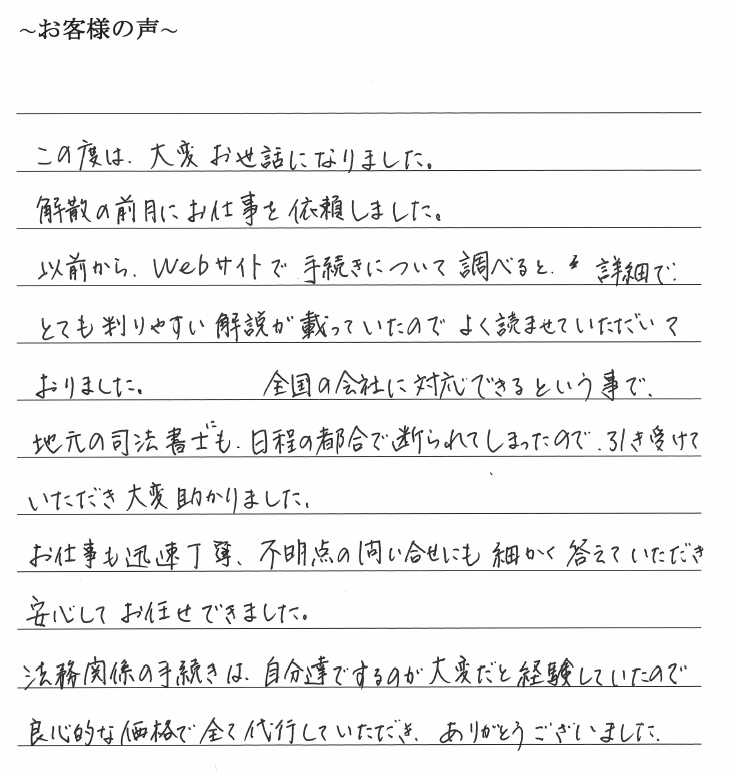 ~お客様の声~
この度は、大変お世話になりました。
解散の前月にお仕事を依頼しました。
以前から、Webサイトで手続きについて調べると、詳細で、
とても判りやすい解説が載っていたのでよく読ませていただいて
おりました。 全国の会社に対応できるという事で、
地元の司法書士にも、日程の都合で断られてしまったので、引き受けて
いただき大変助かりました。
お仕事も迅速丁寧、不明点の問い合せにも細かく答えていただき
安心してお任せできました。
法務関係の手続きは、自分達でするのが大変だと経験していたので
良心的な価格で全て代行していただき、ありがとうございました。